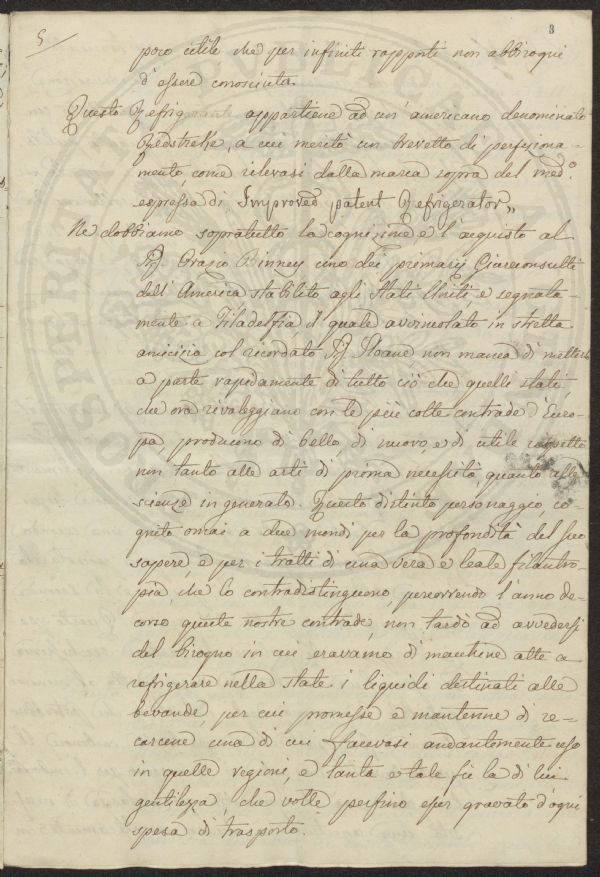 5 3
poco utile che per infiniti rapporti non abbisogni
d'essere conosciuta.
Questo Refrigerante appartiene ad un' americano denominato
a cui meritò un brevetto di perfeziona-
mento, come rilevasi dalla marca sopra del med.o
espressa di Improved patent Refrigerator„
Ne dobbiamo sopratutto la cognizione e l'acquisto al
Sig. Orazio Binney uno dei primarj Giureconsulti
dell'America stabilito agli Stati Uniti e segnata-
mente a Filadelfia, il quale avvincolato in stretta
amicizia col ricordato Sig. Sloane non manca di metterlo
a parte rapidamente di tutto ciò che quelli stati,
che ora rivaleggiano con le più colte contrade d'Euro-
pa, producono di bello, di nuovo, e di utile rispetto
non tanto alle arti di prima necessità, quanto alle
scienze in generale. Questo distinto personaggio, co-
gnito omai a due mondi per la profondità del suo
sapere e per i tratti di una vera e leale filantro-
pia, che lo contradistinguono, percorrendo l'anno de-
corso queste nostre contrade, non tardò ad avvedersi
del bisogno in cui eravamo di macchine atte a
refrigerare nella state i liquidi destinati alle
bevande, per cui promesse e mantenne di re-
carcene una di cui facevasi andantemente uso
in quelle regioni, e tanta e tale fù la di lui
gentilezza, che volle perfino esser gravato d'ogni
spesa di trasporto.